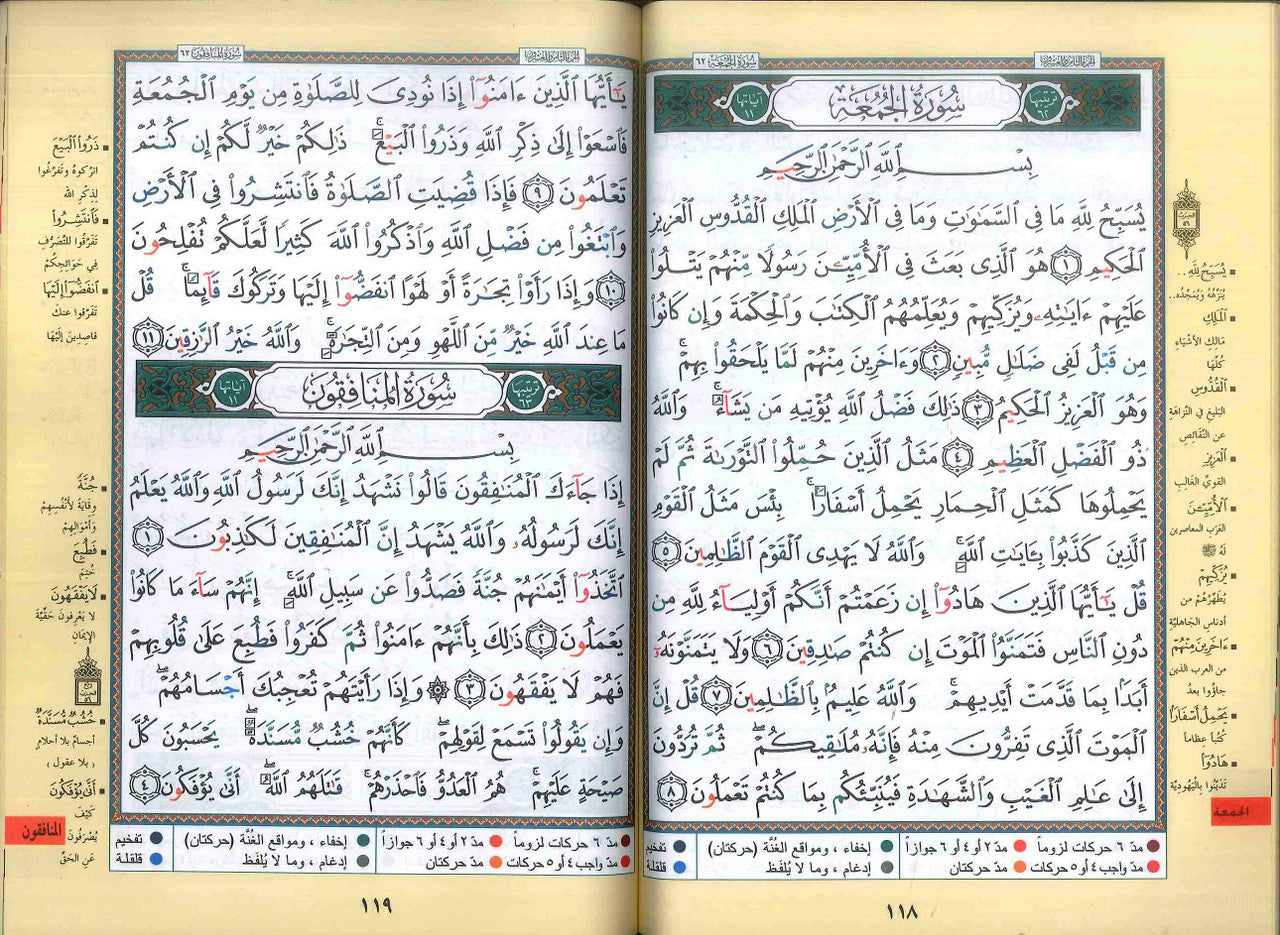 الجزء الثامن والعشرون
سورة الجمعة ٦٢
ترتيبها ٦٢
سُورَةُ الجُمُعَةِ
آياتها ١١
بِسْمِ ٱللَّهِ ٱلرَّحْمَٰنِ ٱلرَّحِيمِ
يُسَبِّحُ لِلَّهِ مَا فِى ٱلسَّمَٰوَٰتِ وَمَا فِى ٱلْأَرْضِ ٱلْمَلِكِ ٱلْقُدُّوسِ ٱلْعَزِيزِ
ٱلْحَكِيمِ ١ هُوَ ٱلَّذِى بَعَثَ فِى ٱلْأُمِّيِّـۧنَ رَسُولًا مِّنْهُمْ يَتْلُوا۟
عَلَيْهِمْ ءَايَٰتِهِۦ وَيُزَكِّيهِمْ وَيُعَلِّمُهُمُ ٱلْكِتَٰبَ وَٱلْحِكْمَةَ وَإِن كَانُوا۟
مِن قَبْلُ لَفِى ضَلَٰلٍ مُّبِينٍ ٢ وَءَاخَرِينَ مِنْهُمْ لَمَّا يَلْحَقُوا۟ بِهِمْ ۚ
وَهُوَ ٱلْعَزِيزُ ٱلْحَكِيمُ ٣ ذَٰلِكَ فَضْلُ ٱللَّهِ يُؤْتِيهِ مَن يَشَآءُ ۚ وَٱللَّهُ
ذُو ٱلْفَضْلِ ٱلْعَظِيمِ ٤ مَثَلُ ٱلَّذِينَ حُمِّلُوا۟ ٱلتَّوْرَىٰةَ ثُمَّ لَمْ
يَحْمِلُوهَا كَمَثَلِ ٱلْحِمَارِ يَحْمِلُ أَسْفَارًۢا ۚ بِئْسَ مَثَلُ ٱلْقَوْمِ
ٱلَّذِينَ كَذَّبُوا۟ بِـَٔايَٰتِ ٱللَّهِ ۚ وَٱللَّهُ لَا يَهْدِى ٱلْقَوْمَ ٱلظَّٰلِمِينَ ٥
قُلْ يَٰٓأَيُّهَا ٱلَّذِينَ هَادُوٓا۟ إِن زَعَمْتُمْ أَنَّكُمْ أَوْلِيَآءُ لِلَّهِ مِن
دُونِ ٱلنَّاسِ فَتَمَنَّوُا۟ ٱلْمَوْتَ إِن كُنتُمْ صَٰدِقِينَ ٦ وَلَا يَتَمَنَّوْنَهُۥٓ
أَبَدًۢا بِمَا قَدَّمَتْ أَيْدِيهِمْ ۚ وَٱللَّهُ عَلِيمٌۢ بِٱلظَّٰلِمِينَ ٧ قُلْ إِنَّ
ٱلْمَوْتَ ٱلَّذِى تَفِرُّونَ مِنْهُ فَإِنَّهُۥ مُلَٰقِيكُمْ ۖ ثُمَّ تُرَدُّونَ
إِلَىٰ عَٰلِمِ ٱلْغَيْبِ وَٱلشَّهَٰدَةِ فَيُنَبِّئُكُم بِمَا كُنتُمْ تَعْمَلُونَ ٨
الحزب ٥٦
يُسَبِّحُ لِلَّهِ..
يُنَزِّهُهُ ويُمَجِّدُه..
ٱلْمَلِكِ
مَالِكِ الأَشْيَاءِ
كُلِّهَا
ٱلْقُدُّوسِ
البَلِيغِ في النَّزَاهَةِ
عن النَّقَائِصِ
ٱلْعَزِيزِ
القويِّ الغَالِبِ
ٱلْأُمِّيِّـۧنَ
العَرَبِ المعاصرين
لَهُ ﷺ
يُزَكِّيهِمْ
يُطَهِّرُهُمْ من
أدناس الجَاهليَّةِ
ءَاخَرِينَ مِنْهُمْ
من العرب الذين
جاؤُوا بعدُ
يَحْمِلُ أَسْفَارًا
كُتُباً عِظَاماً
هَادُوٓا۟
تَدَيَّنُوا بِاليَهُودِيَّة
الجمعة
مدّ ٦ حركات لزوماً
مدّ ٢ أو ٤ أو ٦ جوازاً
إخفاء، ومواقع الغُنَّة (حركتان)
تفخيم
مدّ واجب ٤ أو ٥ حركات
مدّ حركتان
إدغام، وما لا يُلفَظ
قلقلة
١١٨
الجزء الثامن والعشرون
سورة المنافقون ٦٣
يَٰٓأَيُّهَا ٱلَّذِينَ ءَامَنُوٓا۟ إِذَا نُودِىَ لِلصَّلَوٰةِ مِن يَوْمِ ٱلْجُمُعَةِ
فَٱسْعَوْا۟ إِلَىٰ ذِكْرِ ٱللَّهِ وَذَرُوا۟ ٱلْبَيْعَ ۚ ذَٰلِكُمْ خَيْرٌ لَّكُمْ إِن كُنتُمْ
تَعْلَمُونَ ٩ فَإِذَا قُضِيَتِ ٱلصَّلَوٰةُ فَٱنتَشِرُوا۟ فِى ٱلْأَرْضِ
وَٱبْتَغُوا۟ مِن فَضْلِ ٱللَّهِ وَٱذْكُرُوا۟ ٱللَّهَ كَثِيرًا لَّعَلَّكُمْ تُفْلِحُونَ
١٠ وَإِذَا رَأَوْا۟ تِجَٰرَةً أَوْ لَهْوًا ٱنفَضُّوٓا۟ إِلَيْهَا وَتَرَكُوكَ قَآئِمًا ۚ قُلْ
مَا عِندَ ٱللَّهِ خَيْرٌ مِّنَ ٱللَّهْوِ وَمِنَ ٱلتِّجَٰرَةِ ۚ وَٱللَّهُ خَيْرُ ٱلرَّٰزِقِينَ ١١
ترتيبها ٦٣
سُورَةُ المُنَافِقُون
آياتها ١١
بِسْمِ ٱللَّهِ ٱلرَّحْمَٰنِ ٱلرَّحِيمِ
إِذَا جَآءَكَ ٱلْمُنَٰفِقُونَ قَالُوا۟ نَشْهَدُ إِنَّكَ لَرَسُولُ ٱللَّهِ وَٱللَّهُ يَعْلَمُ
إِنَّكَ لَرَسُولُهُۥ وَٱللَّهُ يَشْهَدُ إِنَّ ٱلْمُنَٰفِقِينَ لَكَٰذِبُونَ ١
ٱتَّخَذُوٓا۟ أَيْمَٰنَهُمْ جُنَّةً فَصَدُّوا۟ عَن سَبِيلِ ٱللَّهِ ۚ إِنَّهُمْ سَآءَ مَا كَانُوا۟
يَعْمَلُونَ ٢ ذَٰلِكَ بِأَنَّهُمْ ءَامَنُوا۟ ثُمَّ كَفَرُوا۟ فَطُبِعَ عَلَىٰ قُلُوبِهِمْ
فَهُمْ لَا يَفْقَهُونَ ٣ ۞ وَإِذَا رَأَيْتَهُمْ تُعْجِبُكَ أَجْسَامُهُمْ ۖ
وَإِن يَقُولُوا۟ تَسْمَعْ لِقَوْلِهِمْ ۖ كَأَنَّهُمْ خُشُبٌ مُّسَنَّدَةٌ ۖ يَحْسَبُونَ كُلَّ
صَيْحَةٍ عَلَيْهِمْ ۚ هُمُ ٱلْعَدُوُّ فَٱحْذَرْهُمْ ۚ قَٰتَلَهُمُ ٱللَّهُ ۖ أَنَّىٰ يُؤْفَكُونَ ٤
ذَرُوا۟ ٱلْبَيْعَ
اتركوهُ وتَفَرَّغُوا
لِذِكْرِ الله
فَٱنتَشِرُوا۟
تَفَرَّقُوا للتَّصَرُّفِ
فِي حَوَائِجِكُمْ
ٱنفَضُّوٓا۟ إِلَيْهَا
تَفَرَّقُوا عنكَ
قاصِدِينَ إلَيْهَا
جُنَّةً
وِقَايَةً لأَنْفُسِهِمْ
وَأمْوَالِهِمْ
فَطُبِعَ
خُتِمَ
لَا يَفْقَهُونَ
لا يَعْرِفونَ حَقِّيَّةَ
الإيمَانِ
ربع الحزب ٥٦
خُشُبٌ مُّسَنَّدَةٌ
أجسامٌ بلا أحلام
(بلا عقول)
أَنَّىٰ يُؤْفَكُونَ
كَيْفَ
يُصْرَفُونَ
عَنِ الحَقِّ
المنافقون
مدّ ٦ حركات لزوماً
مدّ ٢ أو ٤ أو ٦ جوازاً
إخفاء، ومواقع الغُنَّة (حركتان)
تفخيم
مدّ واجب ٤ أو ٥ حركات
مدّ حركتان
إدغام، وما لا يُلفَظ
قلقلة
١١٩